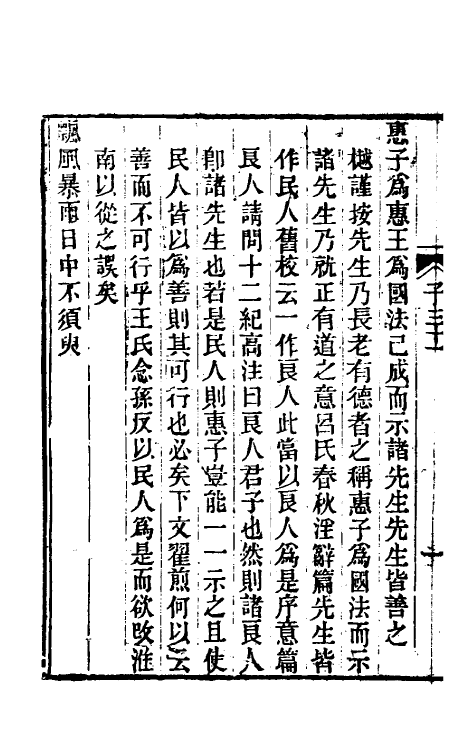 惠子爲惠王爲國法已成而示諸先生先生皆善之
樾謹按先生乃長老有德者之稱惠子爲國法而示
諸先生乃就正有道之意呂氏春秋淫辭篇先生皆
作民人舊校云一作良人此當以良人爲是序意篇
良人請問十二紀高注曰良人君子也然則諸良人
卽諸先生也若是民人則惠子豈能一一示之且使
民人皆以爲善則其可行也必矣下文翟煎何以云
善而不可行乎王氏念孫反以民人爲是而欲改淮
南以從之誤矣
飄風暴雨日中不須臾
子三十